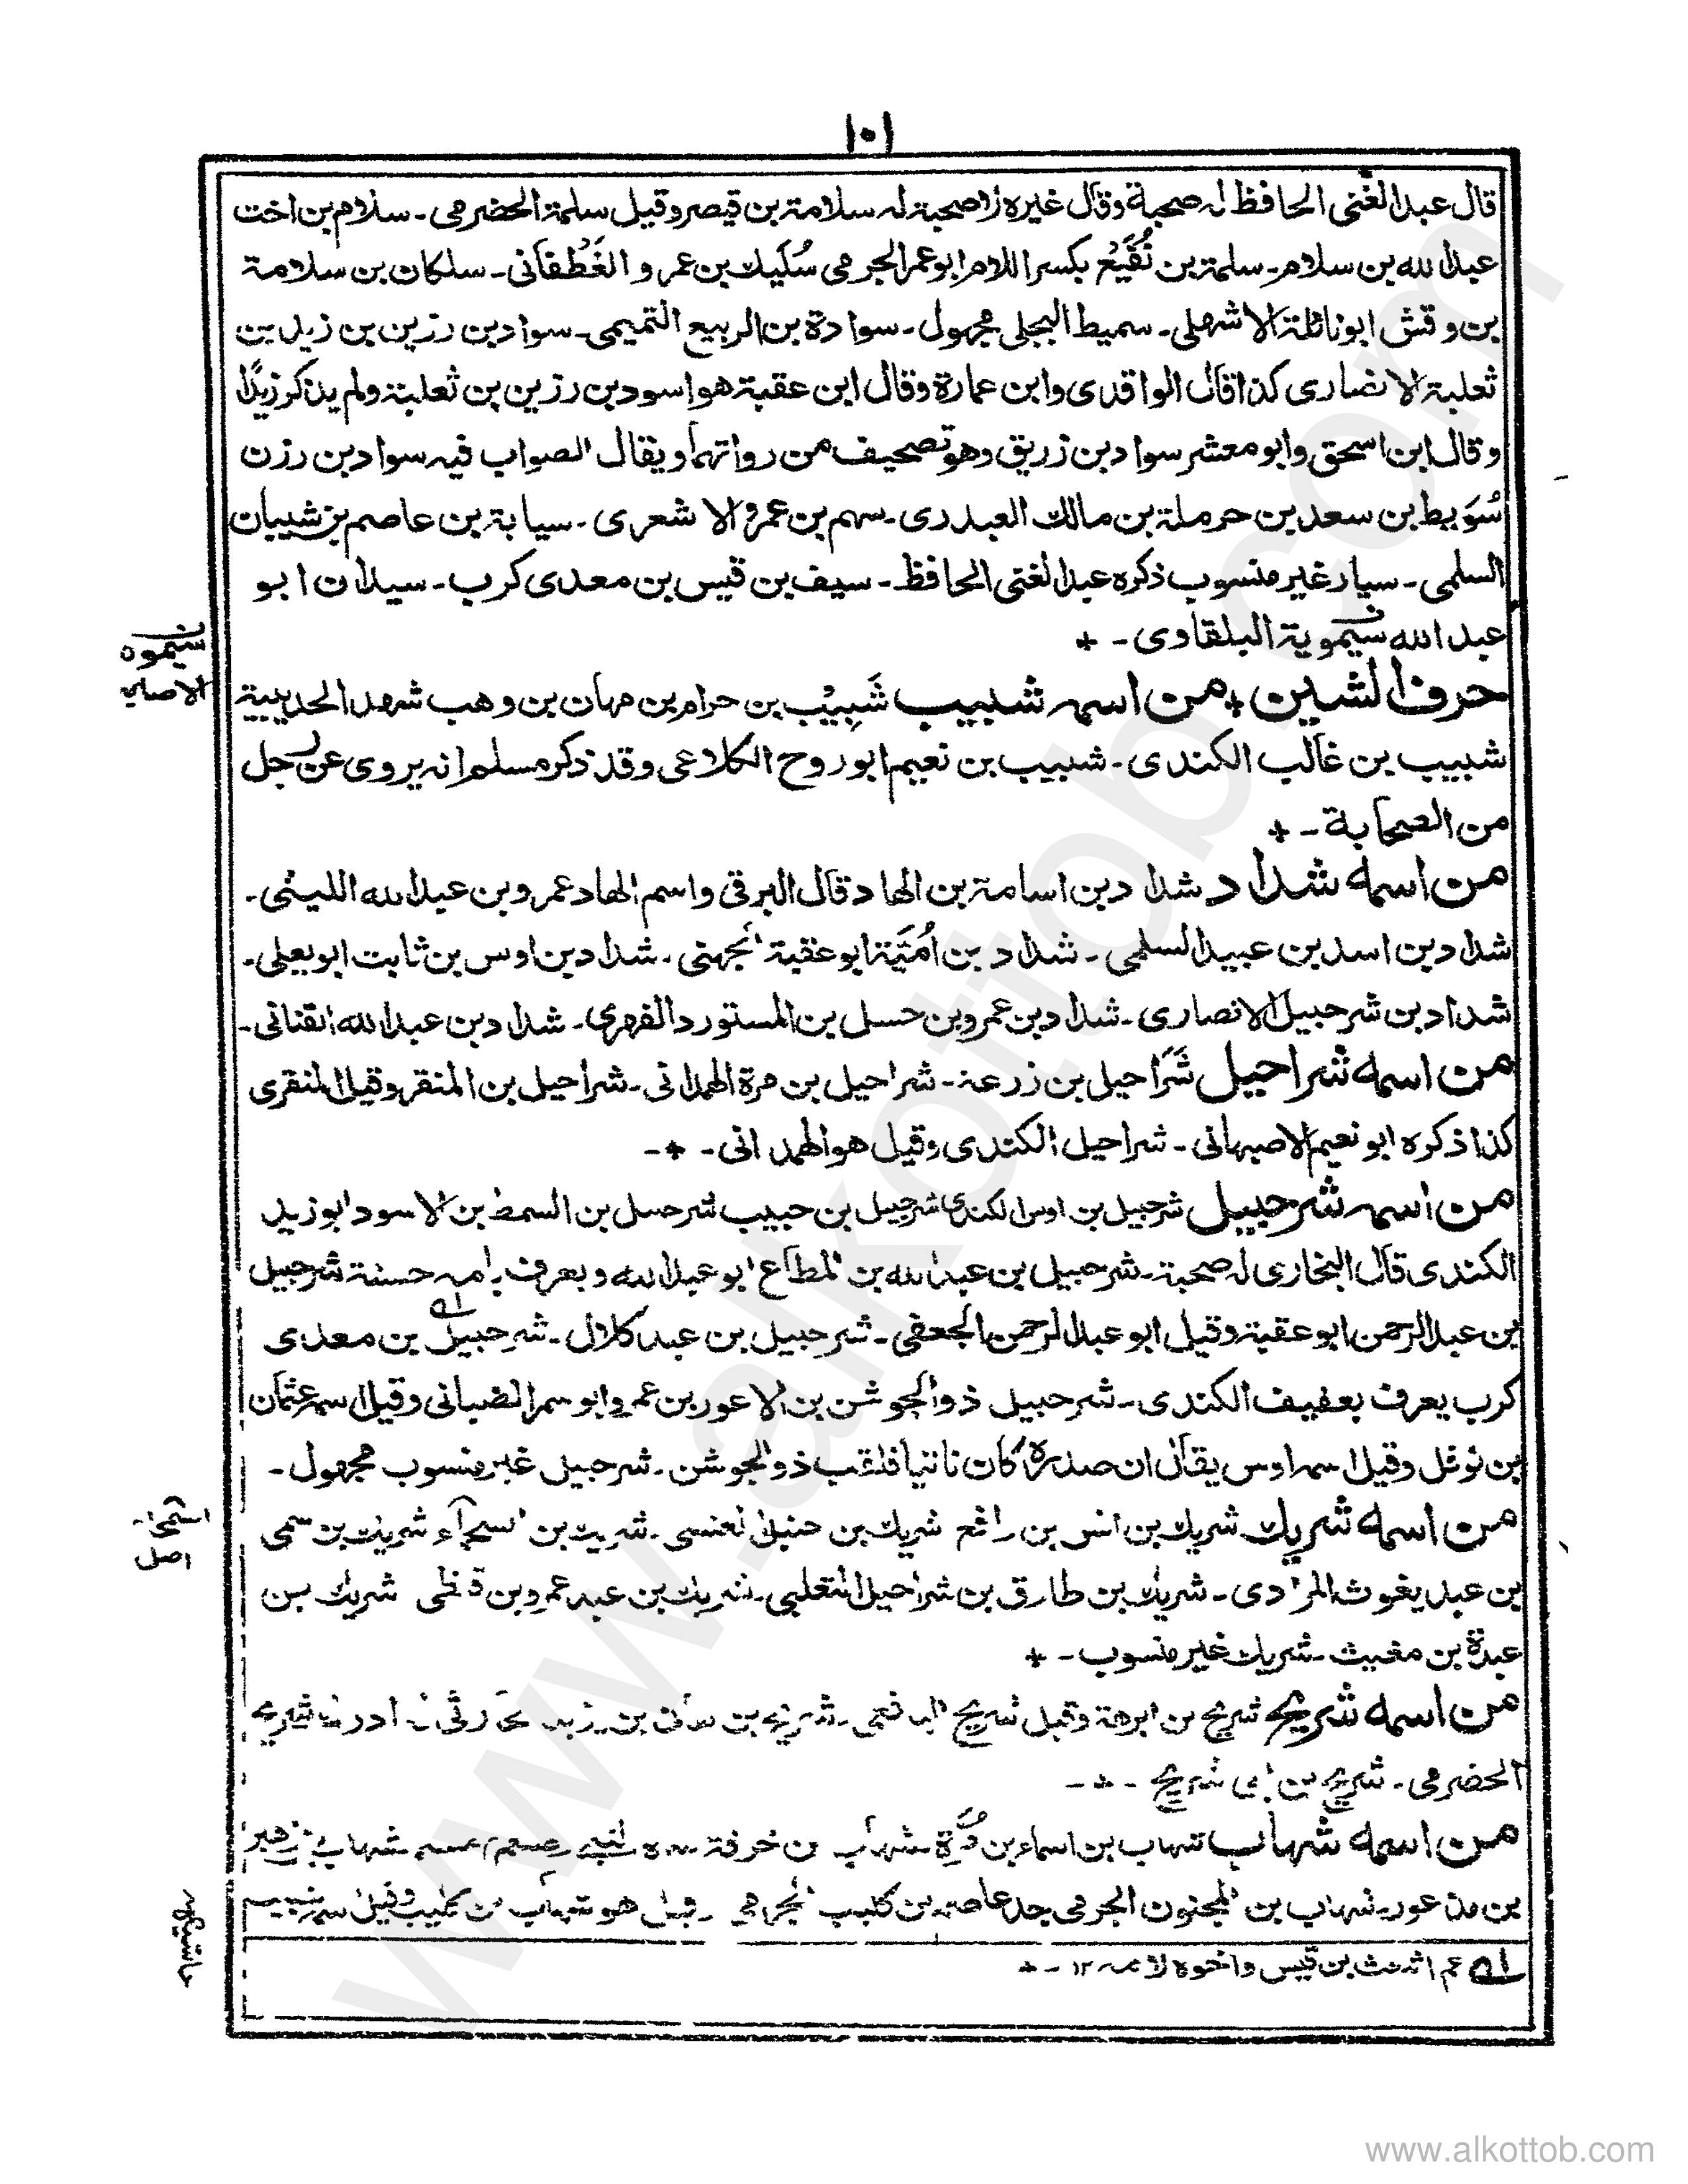 ١٥١
قال عبد الغنى الحافظ له صحبة وقال غيره لا صحبة له سلامة بن قيصر وقيل سلمة الحضرمي - سلام بن اخت
عبد الله بن سلام - سلمة بن نُفَيْع بكسر اللام ابو عمر الجرمي سُلَيك بن عمرو الغَطفانى - سلكان بن سلامة
بن وقش ابو نائلة الاشهلى - سميط البجلى مجهول - سوادة بن الربيع التميمى - سواد بن رزين بن زيد بن
ثعلبة الانصارى كذا قال الواقدى وابن عمارة وقال ابن عقبة هو اسود بن رزين بن ثعلبة ولم يذكر زيدًا
وقال ابن اسحق وابو معشر سواد بن زريق وهو تصحيف من رواتهما ويقال الصواب فيه سواد بن رزن
سُوَيبط بن سعد بن حرملة بن مالك العبدرى - سهم بن عمرو الاشعرى - سيابة بن عاصم بن شيبان
السلمى - سيار غير منسوب ذكره عبد الغنى الحافظ - سيف بن قيس بن معدى كرب - سيدان ابو
عبد الله سيموية البلقاوى - *
سيموه
الاصل
حرف الشين * من اسمه شبيب شَبِيْب بن حرام بن مهان بن وهب شهد الحديبية
شبيب بن غالب الكندى - شبيب بن نعيم ابو روح الكلاعى وقد ذكر مسلم انه يروى عن رجل
من الصحابة - *
من اسمه شداد شداد بن اسامة بن الهاد قال البرقى واسم الهاد عمرو بن عبد الله الليثى -
شداد بن اسد بن عبيد السلمى - شداد بن اُمَيَّة ابو عقبة الجهنى - شداد بن اوس بن ثابت ابو يعلى -
شداد بن شرحبيل الانصارى - شداد بن عمرو بن حسل بن المستورد الفهرى - شداد بن عبد الله القنانى -
من اسمه شراحيل شَرَاحيل بن زرعة - شراحيل بن مرة الهمدانى - شراحيل بن المنقر وقيل المنقرى
كذا ذكره ابو نعيم الاصبهانى - شراحيل الكندى وقيل هو الهمدانى - * -
من اسمه شرحبيل شرحبيل بن اوس الكندى شرحبيل بن حبيب شرحبيل بن السمط بن الاسود ابو زيد
الكندى قال البخارى له صحبة - شرحبيل بن عبد الله بن المطاع ابو عبد الله ويعرف بامه حسنة شرحبيل
بن عبد الرحمن ابو عقبة وقيل ابو عبد الرحمن الجعفى - شرحبيل بن عبد كلال - شرحبيل بن معدى
كرب يعرف بعفيف الكندى - شرحبيل ذو الجوشن بن الاعور بن عمرو ابو سمر الضبانى وقيل اسمه عثمان
بن نوفل وقيل اسمه اوس يقال ان صدره كان ناتيا فلقب ذو الجوشن - شرحبيل غير منسوب مجهول -
من اسمه شريك شريك بن انس بن رافع شريك بن حنبل العنسى - شريك بن السحماء شريك بن سمى
اصل
بن عبد يغوث المرادى - شريك بن طارق بن شراحيل الثعلبى - شريك بن عبد عمرو بن قيظى شريك بن
عبدة بن مغيث - شريك غير منسوب - *
من اسمه شريح شريح بن ابرهة وقيل شريح اليافعى - شريح بن هانى بن يزيد ادرك شريح
الحضرمى - شريح بن ابى شريح - * -
من اسمه شهاب شهاب بن اسماء بن مُرة - شهاب بن خرفة شهاب بن زهير
بن مذعور - شهاب بن المجنون الجرمى جد عاصم بن كليب الجرمى - وقيل هو شهاب بن كليب وقيل اسمه شبيب
له عم اشعث بن قيس واخوه لامه ١٢ - *
www.alkottob.com
www.alkottob.com